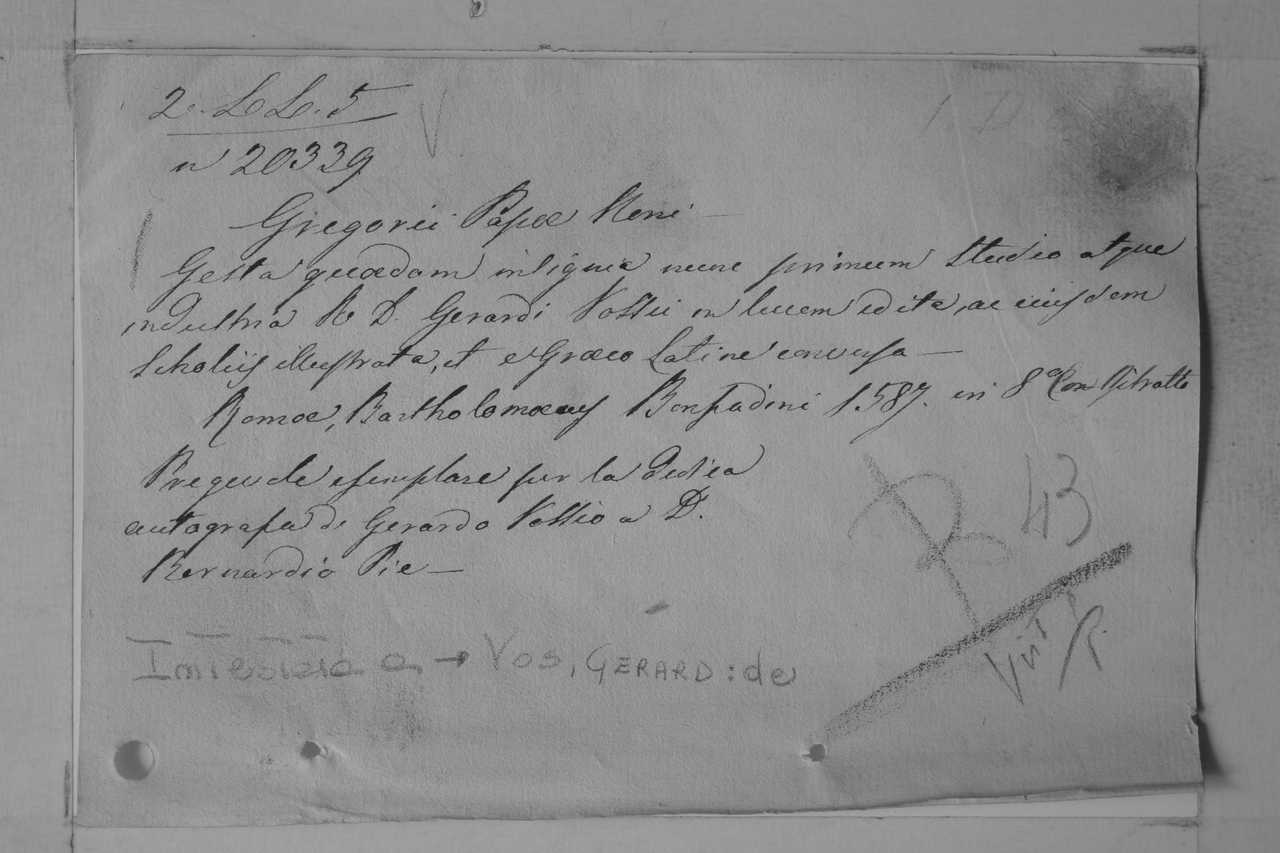 2. L L. 5
n 20339
Gregorii Papæ Noni
Gesta quædam insignia nunc primum studio atque
industria R D. Gerardi Vossii in lucem edita, ac eiusdem
Scholiis illustrata, et e Græco Latine conversa
Romæ, Bartholomæus Bonfadini 1587. in 8º Con Ritratto
Pregevole esemplare per la dedica
autografa di Gerardo Vossio a D.
Bernardio Pie
Intestata a → VOS, GERARD: de
R 43
Vist R.